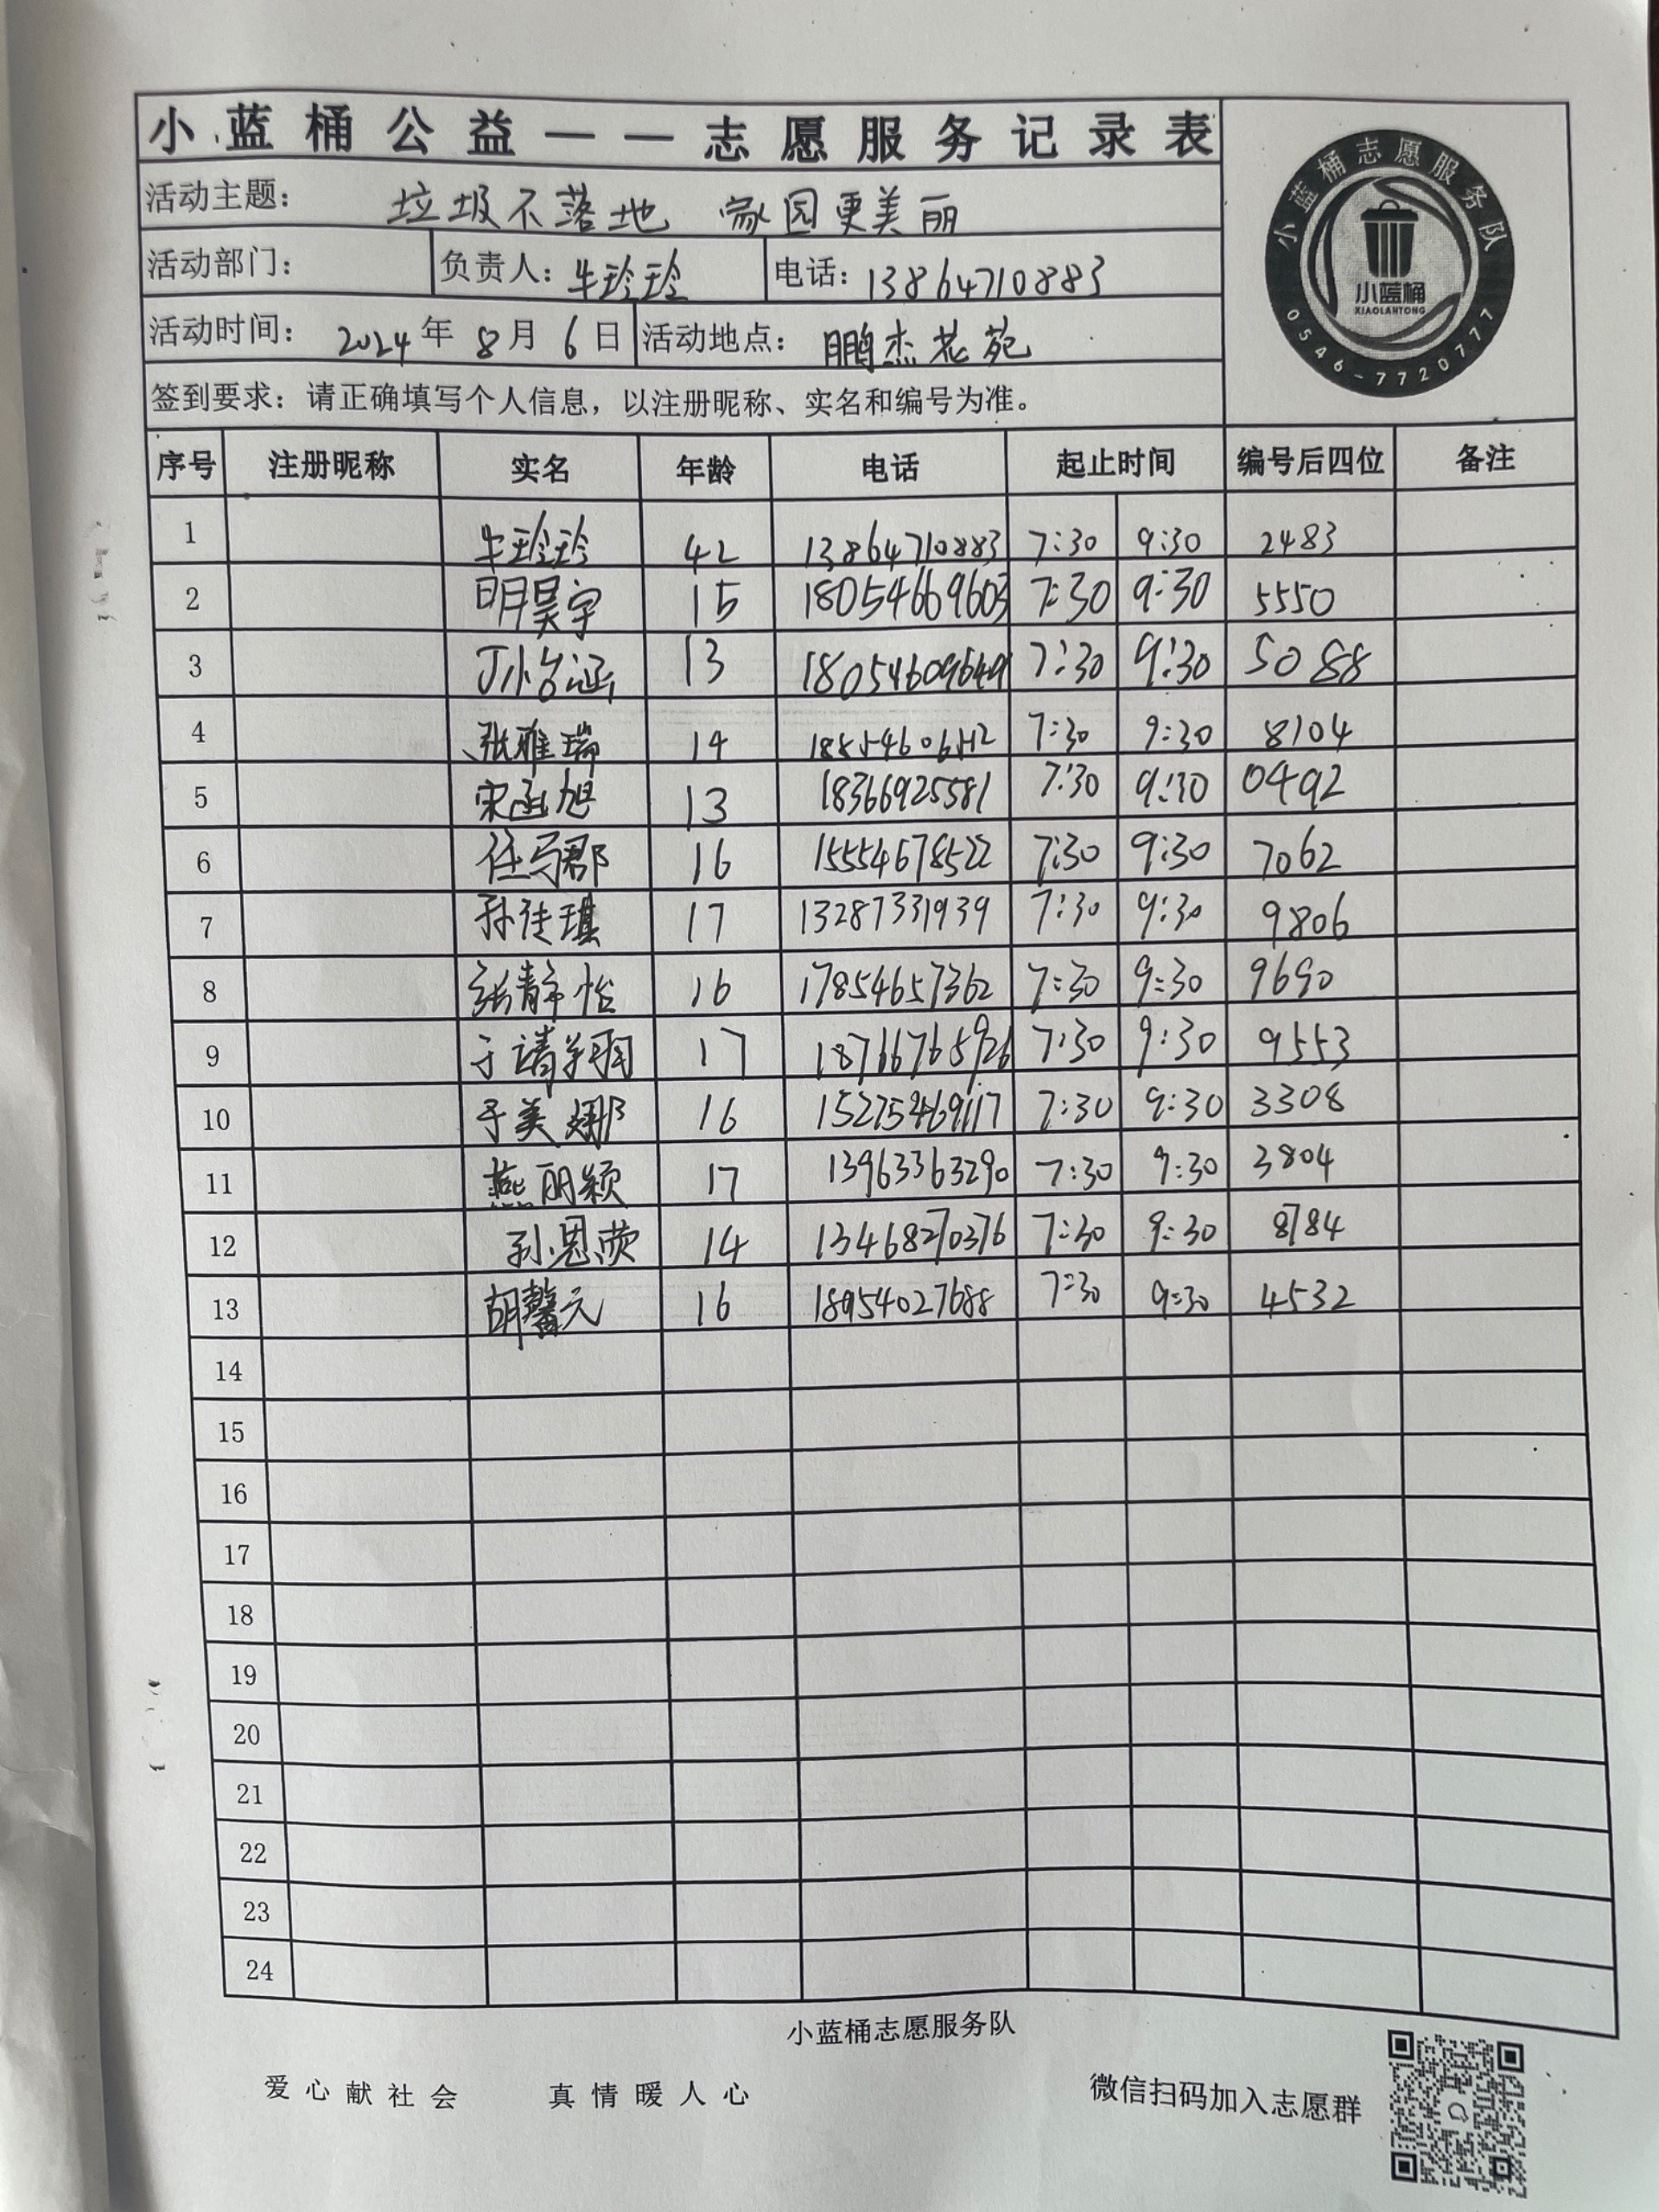 小蓝桶公益——志愿服务记录表
活动主题： 垃圾不落地 家园更美丽
活动部门： 负责人：牛玲玲 电话：13864710883
活动时间： 2024年 8月 6日 活动地点： 鹏杰花苑
签到要求：请正确填写个人信息，以注册昵称、实名和编号为准。
小蓝桶志愿服务队
小蓝桶
XIAOLANTONG
0546-7720777
序号 注册昵称 实名 年龄 电话 起止时间 编号后四位 备注
1 牛玲玲 42 13864710883 7:30 9:30 2483
2 明昊宇 15 18054669603 7:30 9:30 5550
3 13 18054609649 7:30 9:30 5088
4 张雅瑞 14 7:30 9:30 8104
5 宋函旭 13 18366925581 7:30 9:30 0492
6 任马郡 16 15554678522 7:30 9:30 7062
7 孙佳琪 17 13287331939 7:30 9:30 9806
8 张静怡 16 17854657362 7:30 9:30 9690
9 17 18766765926 7:30 9:30 9553
10 于美娜 16 15275469117 7:30 9:30 3308
11 燕丽颖 17 13963363290 7:30 9:30 3804
12 孙恩荧 14 13468270376 7:30 9:30 8784
13 胡馨元 16 18954027688 7:30 9:30 4532
14
15
16
17
18
19
20
21
22
23
24
小蓝桶志愿服务队
爱心献社会 真情暖人心 微信扫码加入志愿群